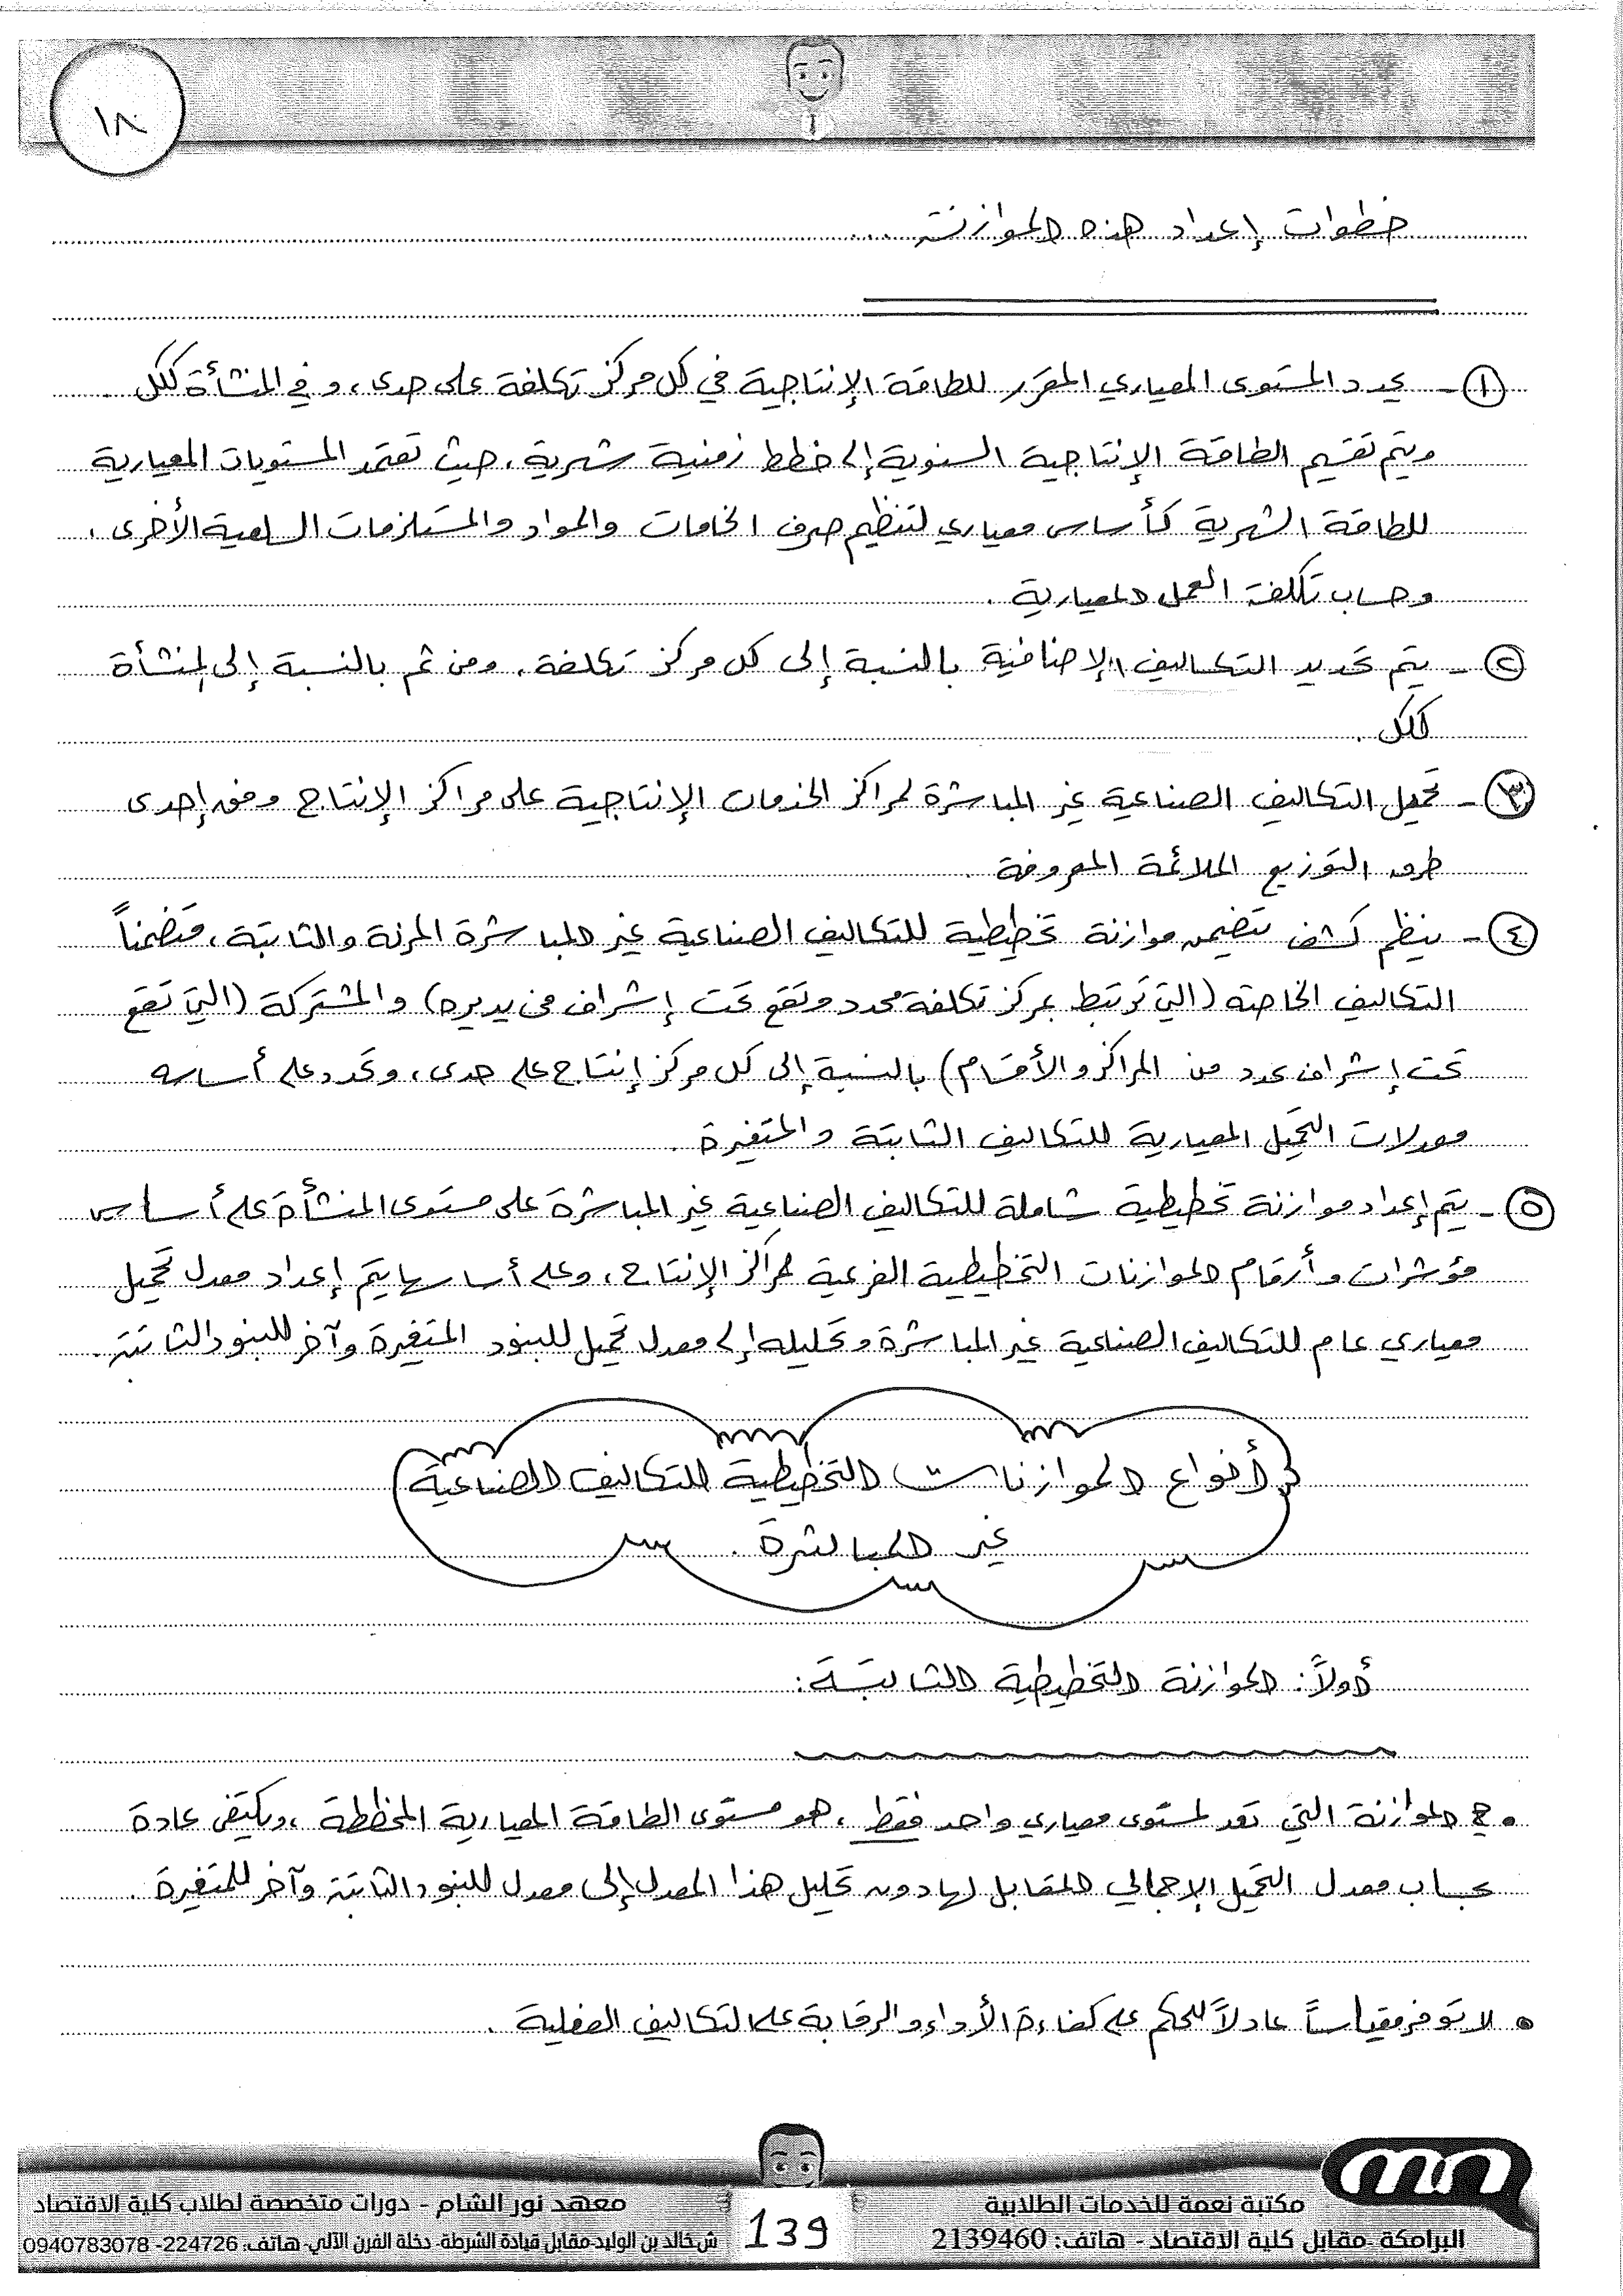 ١٨
خطوات إعداد هذه الموازنة ...
١- يحدد المستوى المعياري المقرر للطاقة الإنتاجية في كل مركز تكلفة على حدى، وفي المنشأة ككل.
ويتم تقسيم الطاقة الإنتاجية السنوية إلى خطط زمنية شهرية، حيث تعتمد المستويات المعيارية
للطاقة الشهرية كأساس معياري لتنظيم صرف الخامات والمواد والمستلزمات السلعية الأخرى،
وحساب تكلفة العمل المعيارية.
٢- يتم تحديد التكاليف الإضافية بالنسبة إلى كل مركز تكلفة، ومن ثم بالنسبة إلى المنشأة
ككل.
٣- تحميل التكاليف الصناعية غير المباشرة لمراكز الخدمات الإنتاجية على مراكز الإنتاج وفق إحدى
طرق التوزيع الملائمة المعروفة.
٤- ينظم كشف يتضمن موازنة تخطيطية للتكاليف الصناعية غير المباشرة المرنة والثابتة، متضمناً
التكاليف الخاصة (التي ترتبط بمركز تكلفة محدد وتقع تحت إشراف من يديره) والمشتركة (التي تقع
تحت إشراف عدد من المراكز والأقسام) بالنسبة إلى كل مركز إنتاج على حدى، وتحدد على أساسه
معدلات التحميل المعيارية للتكاليف الثابتة والمتغيرة.
٥- يتم إعداد موازنة تخطيطية شاملة للتكاليف الصناعية غير المباشرة على مستوى المنشأة على أساس
مؤشرات وأرقام الموازنات التخطيطية الفرعية لمراكز الإنتاج، وعلى أساسها يتم إعداد معدل تحميل
معياري عام للتكاليف الصناعية غير المباشرة وتحليله إلى معدل تحميل للبنود المتغيرة وآخر للبنود الثابتة.
أنواع الموازنات التخطيطية للتكاليف الصناعية
غير المباشرة.
أولاً: الموازنة التخطيطية الثابتة:
• هي الموازنة التي تعد لمستوى معياري واحد فقط، هو مستوى الطاقة المعيارية المخططة، ويكتفى عادة
بحساب معدل التحميل الإجمالي المقابل لها دون تحليل هذا المعدل إلى معدل للبنود الثابتة وآخر للمتغيرة.
• لا توفر مقياساً عادلاً للحكم على كفاءة الأداء والرقابة على التكاليف الفعلية.
مكتبة نعمة للخدمات الطلابية
البرامكة -مقابل كلية الاقتصاد - هاتف: 2139460
139
معهد نور الشام - دورات متخصصة لطلاب كلية الاقتصاد
ش خالد بن الوليد-مقابل قيادة الشرطة- دخلة الفرن الآلي- هاتف: 224726- 0940783078